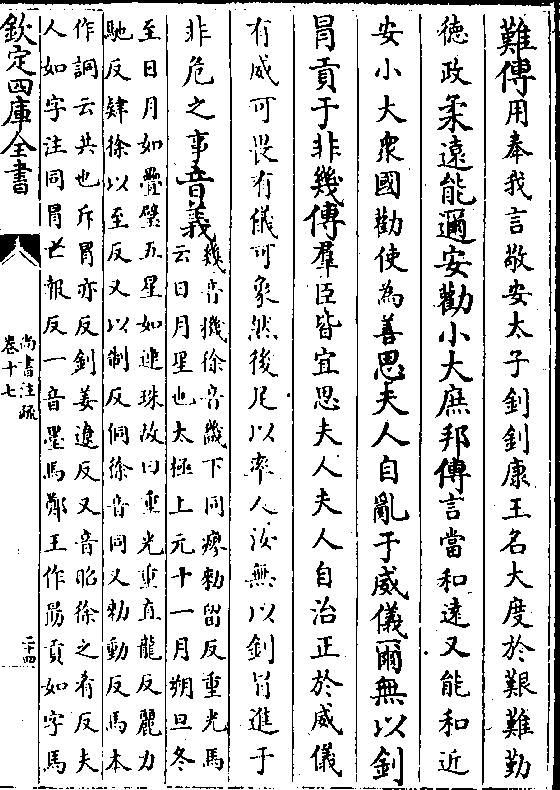 難傳用奉我言敬安太子釗釗康王名大度於艱難勤
德政柔逺能邇安勸小大庶邦傳言當和逺又能和近
安小大衆國勸使為善思夫人自亂于威儀爾無以釗
冒貢于非幾傳羣臣皆宜思夫人夫人自治正於威儀
有威可畏有儀可象然後足以率人汝無以釗冒進于
非危之事音義
幾音機徐音畿下同瘳勑留反重光馬
云日月星也太極上元十一月朔旦冬
至日月如疊璧五星如連珠故曰重光重直龍反麗力
馳反肄徐以至反又以制反侗徐音同又勑動反馬本
作詷云共也斥冒亦反釗姜遼反又音昭徐之肴反夫
人如字注同冒亡報反一音墨馬鄭王作勖貢如字馬
欽定四庫全書
尚書注疏
卷十七
二十四